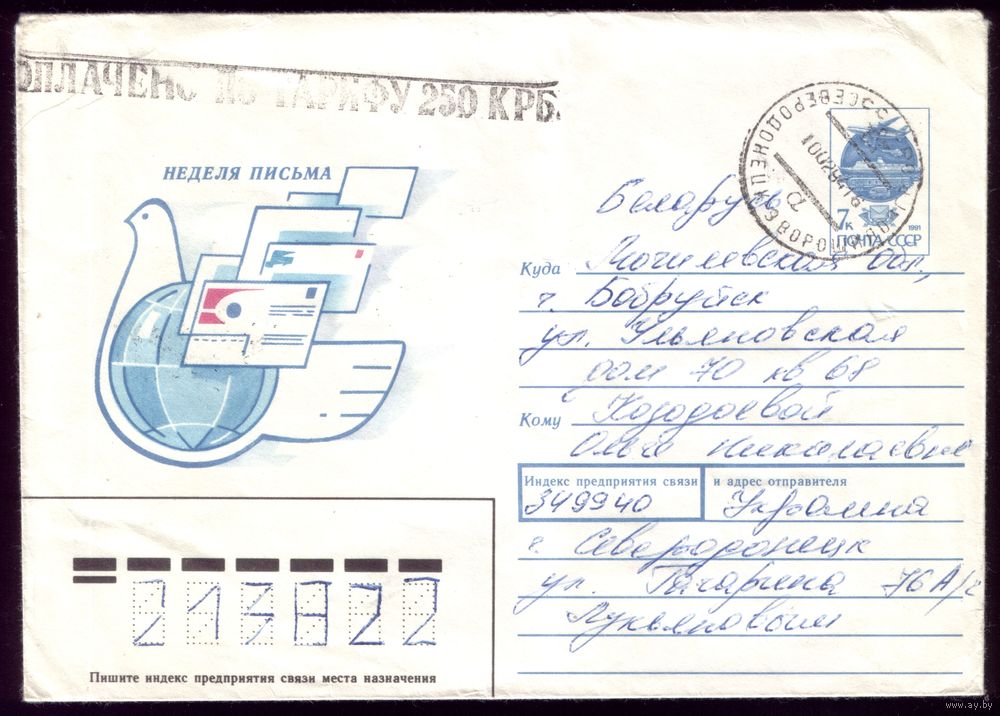 ОПЛАЧЕНО ПО ТАРИФУ 250 КРБ.
НЕДЕЛЯ ПИСЬМА
СЕВЕРОДОНЕЦК
7к
1991
ПОЧТА СССР
Беларусь
Куда Могилевская обл.,
г. Бобруйск
ул. Ульяновская
дом 70 кв 68
Кому Козодоевой
Ольге Николаевне
Индекс предприятия связи и адрес отправителя
349940 Украина
г. Северодонецк
ул. Гагарина 76А/
Лукьяновым
213822
Пишите индекс предприятия связи места назначения
www.ay.by